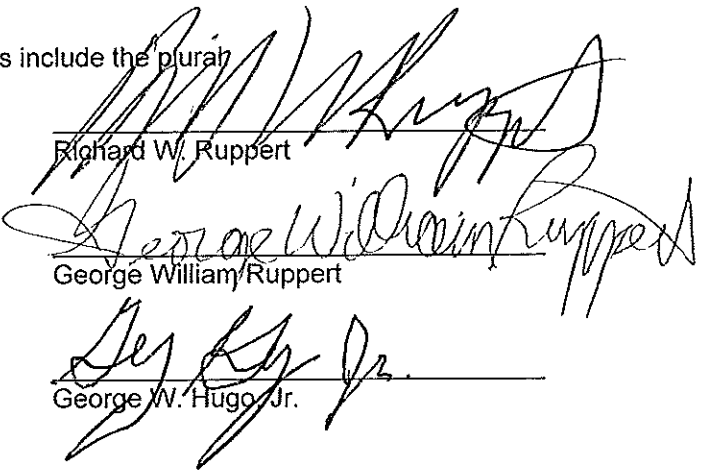 s include the plural
Richard W. Ruppert
George William Ruppert
George William Ruppert
Jr.
George W. Hugo, Jr.